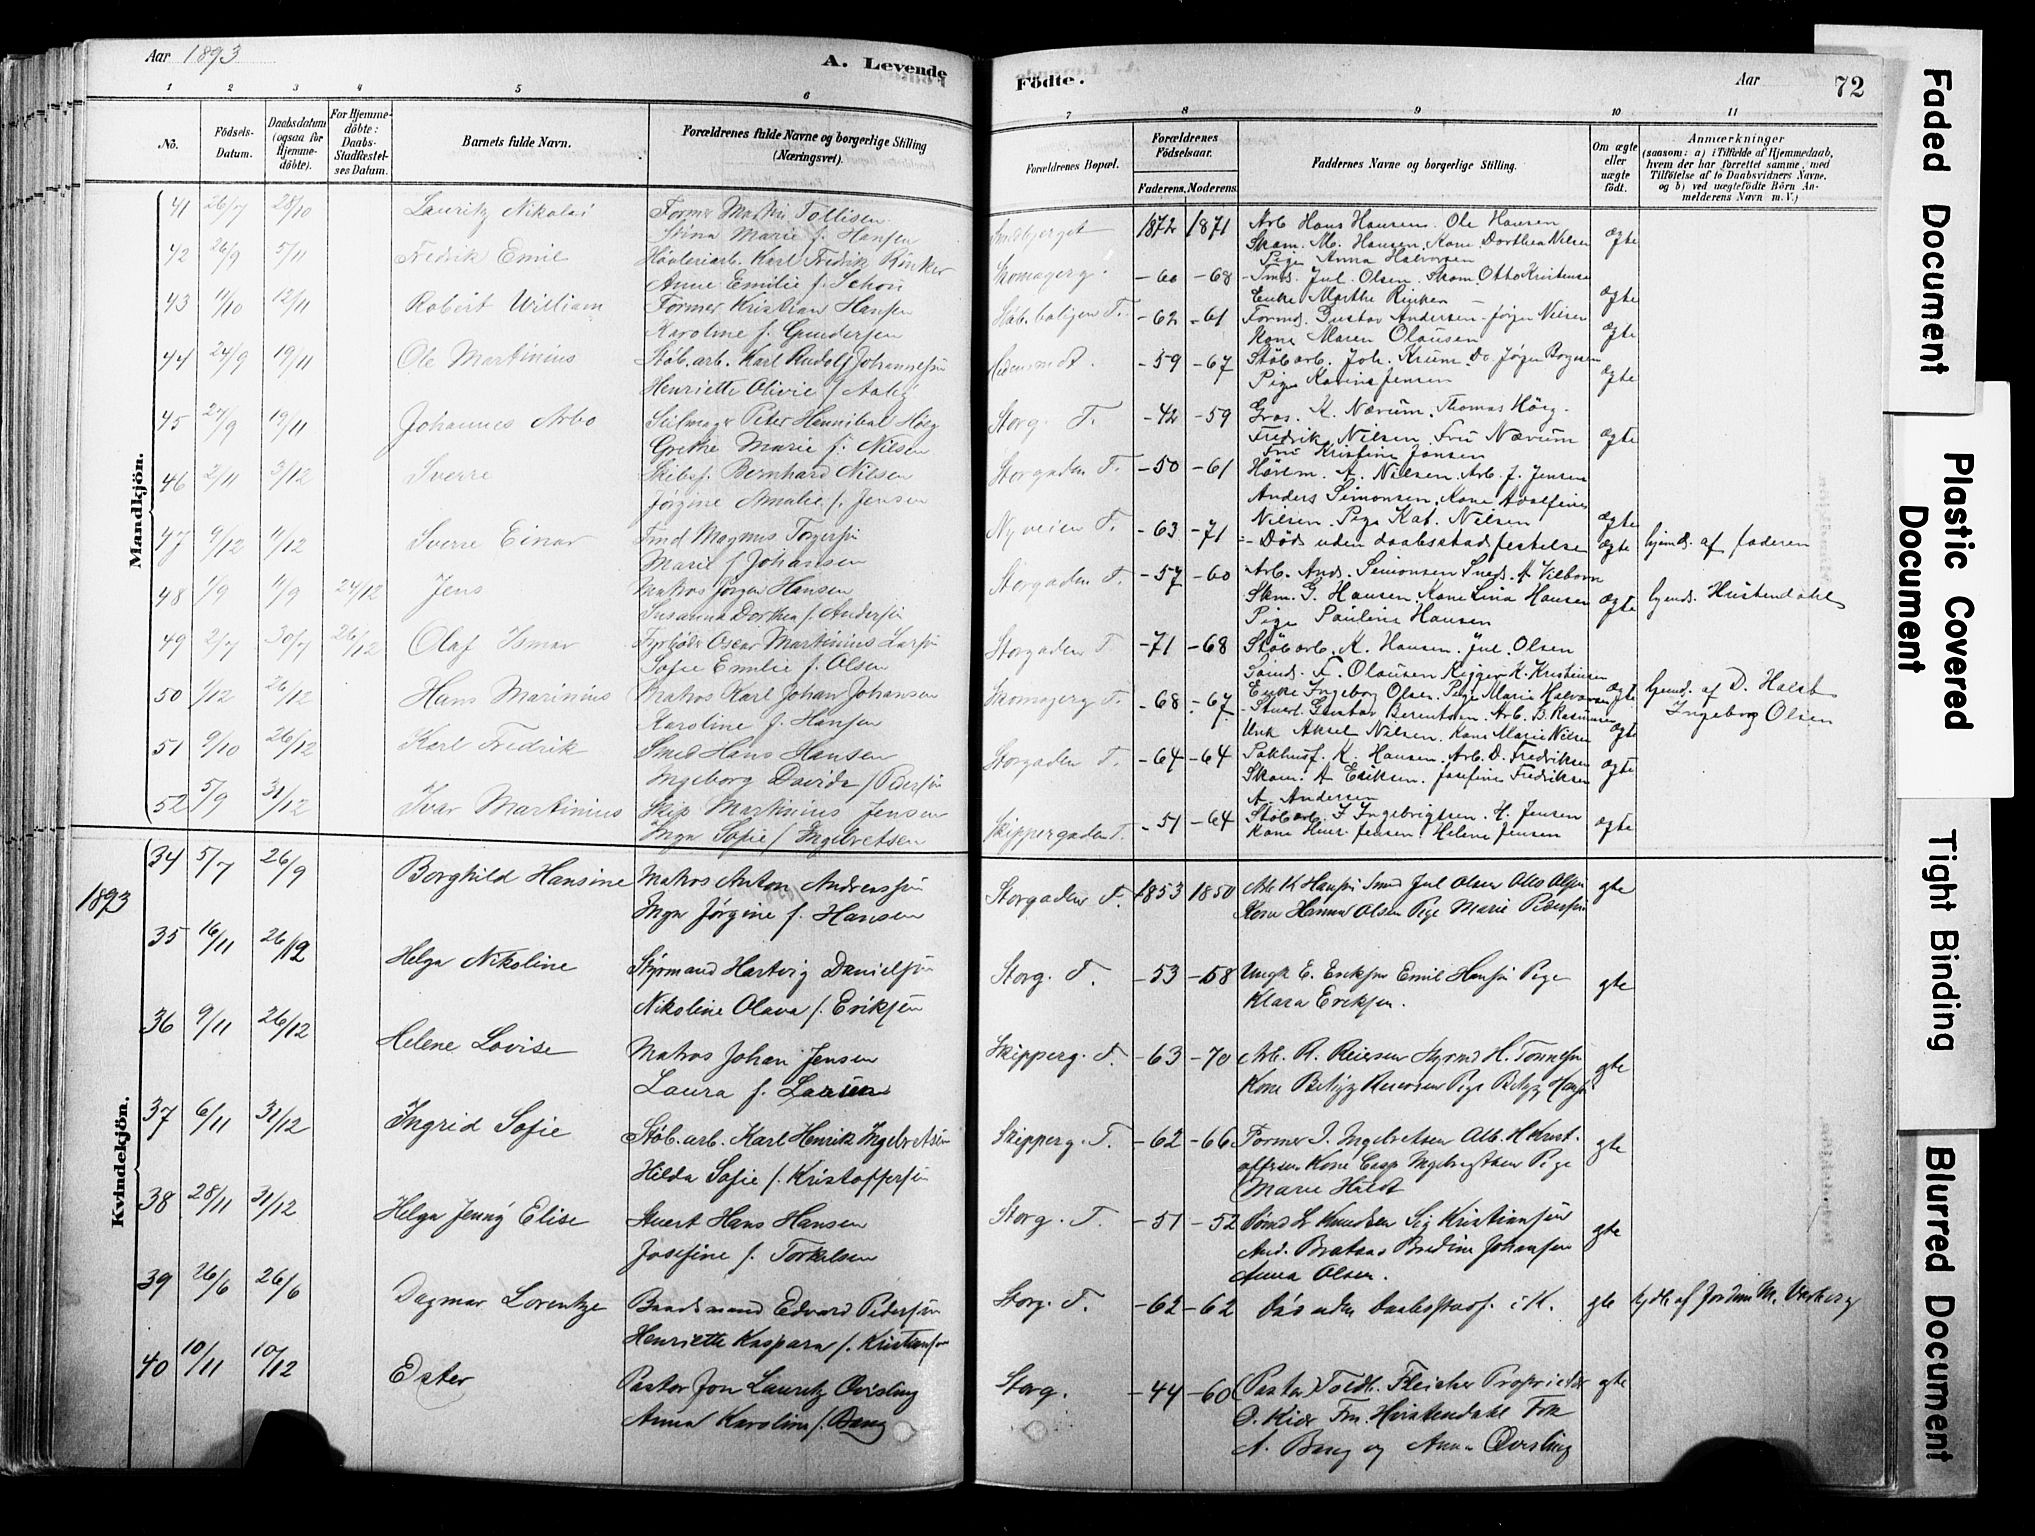 Aar 1893
A. Levende
Födte.
Aar
72
1 2 3 4 5 6 7 8 9 10 11
No.
Födsels-Datum.
Daabsdatum (ogsaa for Hjemme-döbte).
For Hjemme-döbte: Daabs-Stadfæstel-ses Datum.
Barnets fulde Navn.
Forældrenes fulde Navne og borgerlige Stilling (Næringsvei).
Forældrenes Bopæl.
Forældrenes Födselsaar.
Faderens. Moderens.
Faddernes Navne og borgerlige Stilling.
Om ægte eller uægte født.
Anmærkninger
(saasom: a) i Tilfælde af Hjemmedaab, hvem der har forrettet samme, med Tilföielse af to Daabsvidners Navne, og b) ved uægtefödte Börn Anmelderens Navn m. V.)
Mandkjön.
41 26/7 28/10 Lauritz Nikolai Former Martin Tollisen 1872 1871 Arb Hans Hansen. Ole Hansen ægte
Stina Marie f. Hansen Skom. M. Hansen. Kone Dorthea Nilsen
Pige Anna Halvorsen
42 26/9 5/11 Fredrik Emil Høvleriarb. Karl Fredrik Skomagerg. -60 -68 Smd. Jul. Olsen. Skom. Otto Kristensen ægte
Anne Emilie f. Enke Marthe
43 11/10 12/11 Robert William Former Kristian Hansen -62 -61 Formd. Gustav Andersen - Jørgen Nilsen ægte
Karoline f. Gundersen Kone Maren Olausen
44 24/9 19/11 Ole Martinius Støb. arb. Karl Rudolf Johannessen -59 -67 Støb arb. Joh. Krum. Do Jørgen ægte
Henriette Olivie f. Pige Karine Jensen
45 27/9 19/11 Johannes Arbo Peter Hannibal Høeg Storg. T. -42 -59 Gros. K. Nærum. Thomas Höeg. ægte
Grethe Marie f. Nilsen Fredrik Nilsen. Fru Nærum
Fru Kristine Jansen
46 2/11 3/12 Sverre Skibsf. Bernhard Nilsen Storgaden T. -50 -61 A. Nilsen. Arb. J. Jensen
Jørgine Amalie f. Jensen Anders Simonsen. Kone
Nilsen. Pige Kat. Nilsen ægte
47 9/12 11/12 Sverre Einar Smd Magnus Torgersen Nyveien T. -63 -71 - Død uden daabsstadfestelse ægte hjemd. af faderen
Marie f. Johansen
48 1/9 11/9 24/12 Jens Matros Jørgen Hansen Storgaden T. -57 -60 Arb. And. Simonsen Sned. A. ægte
Susanna Dorthea f. Andersen Skm. G. Hansen. Kone Lina Hansen
Pige Pauline Hansen
49 2/7 30/7 26/12 Olaf Ismar Fyrbøder Oscar Martinius Storgaden T -71 -68 Støb arb. K. Hansen. Jul. Olsen
Sofie Emilie f. Olsen F. Olausen Rigger K. Kristiansen
Enke Ingeborg Olsen. Pige Marie Halvorsen ægte hjemd. af D. Holst
Ingeborg Olsen
50 1/12 26/12 Hans Marinius Matros Karl Johan Johansen Skomagerg T. -68 -67 Stuert. Gustav Berentsen. Arb. B. Rasmussen ægte
Karoline f. Hansen Unk Aksel Nilsen. Kone Marie Nilsen
51 9/10 26/12 Karl Fredrik Smed Hans Hansen Storgaden T. -64 -64 Pakhusf. K. Hansen. Arb. D. Fredriksen ægte
Ingeborg Davida f. Pedersen Skom. A Eriksen. Josefine Fredriksen
A. Andersen
52 5/9 31/12 Ivar Martinius Skip. Martinius Jensen Skippergaden T. -51 -64 Støb arb. I Ingebrigtsen. H. Jensen ægte
Inga Sofie f. Ingebretsen Kone Henr. Jensen. Helene Jensen
1893
Kvindekjön.
34 5/7 26/9 Borghild Hansine Matros Anton Anderssen Storgaden T. 1853 1850 Arb K Hansen Smed Jul Olsen Otto Olsen gte
Inga Jørgine f. Hansen Kone Hanna Olsen Pige Marie Pedersen
35 16/11 26/12 Helga Nikoline Styrmand Hartvig Danielsen Storg. T. -53 -58 Ungk E. Eriksen Emil Hansen Pige gte
Nikoline Olava f. Eriksen Klara Eriksen.
36 9/11 26/12 Helene Lovise Matros Johan Jensen Skipperg. T. -63 -70 Arb. R. Reiersen Styrmd H. Tonnesen gte
Laura f. Larsen Kone Betzy Reiersen Pige Betzy
37 6/11 31/12 Ingrid Sofie Støb. arb. Karl Henrik Ingebretsen Skipperg. T. -62 -66 Former I. Ingebretsen Alb. H Krist- gte
Hilda Sofie f. Kristoffersen offersen Kone Casp Ingebrigtsen Pige
Marie Holst
38 28/11 31/12 Helga Jenny Elise Stuert Hans Hansen Storg. T. -51 -52 Sømd L Knudsen Sig Kristiansen gte
Josefine f. Torkelsen And. Brataas Bredine Johansen
Anna Olsen.
39 26/6 26/6 Dagmar Lorentze Baadsmand Edvard Pedersen Storg. T. -62 -62 Døs uden daabsstadf. i K. gte hjdb. af Jordm M.
Henriette Kaspara f. Kristiansen
40 10/11 10/12 Ester Pastor Jon Lauritz Qvisling Storg. -44 -60 Pastor Fleischer Proprietær gte
Anna Karoline f. Bang O. Kiær Fru. Hvistendahl Frk
A. Bang og Anna Qvisling
Faded Document
Plastic Covered Document
Tight Binding
Blurred Document